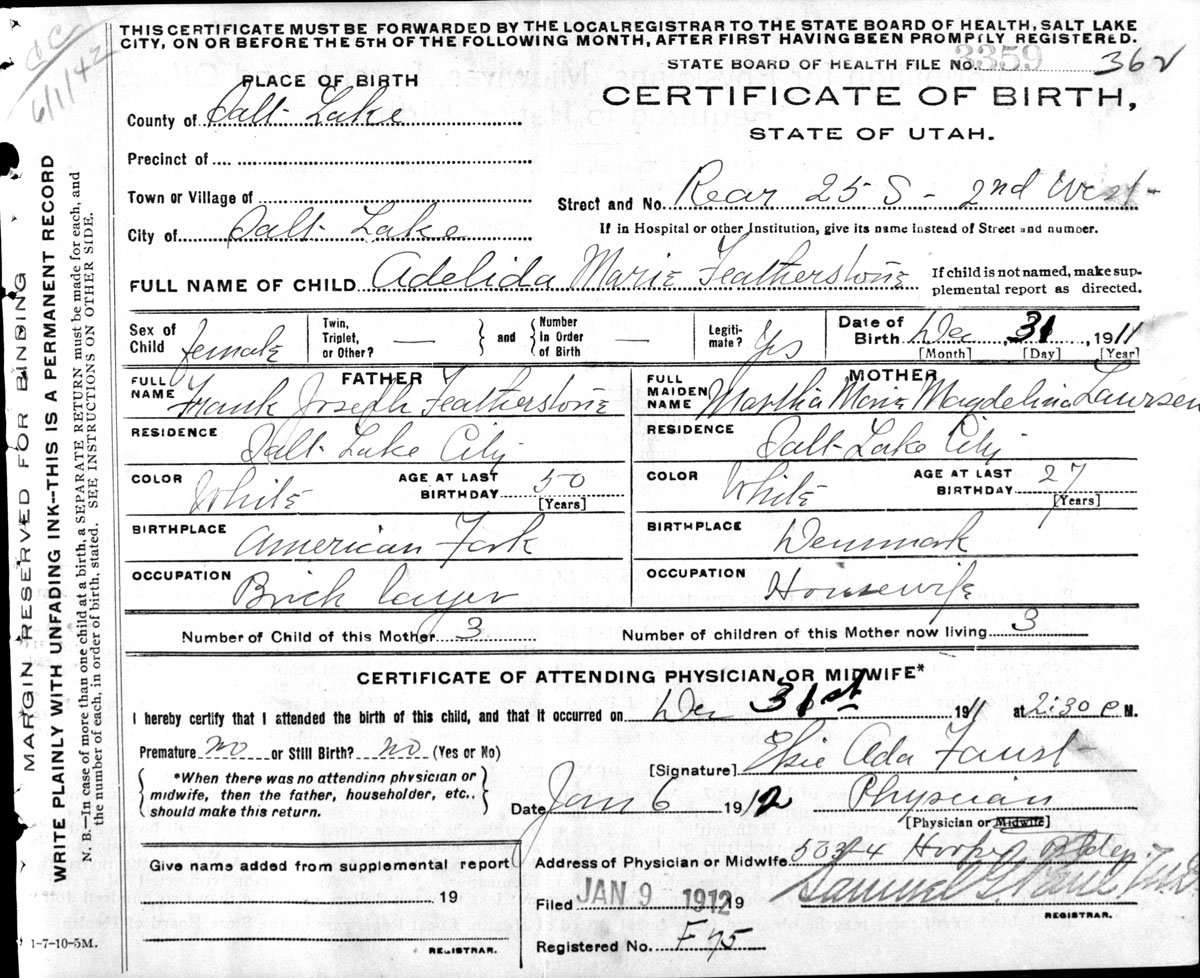 THIS CERTIFICATE MUST BE FORWARDED BY THE LOCAL REGISTRAR TO THE STATE BOARD OF HEALTH, SALT LAKE
CITY, ON OR BEFORE THE 5TH OF THE FOLLOWING MONTH, AFTER FIRST HAVING BEEN PROMPTLY REGISTERED.
6/1/42
3359
STATE BOARD OF HEALTH FILE No. 362
PLACE OF BIRTH
CERTIFICATE OF BIRTH,
STATE OF UTAH.
County of Salt Lake
Precinct of
Town or Village of
Street and No. Rear 25 S - 2nd West
City of Salt Lake
If in Hospital or other Institution, give its name instead of Street and number.
FULL NAME OF CHILD Adelida Marie Featherstone
If child is not named, make sup-
plemental report as directed.
Sex of Child female
Twin, Triplet, or Other? — and Number In Order of Birth —
Legiti-mate? Yes
Date of Birth Dec 31, 1911
[Month] [Day] [Year]
FATHER
FULL NAME Frank Joseph Featherstone
RESIDENCE Salt Lake City
COLOR White AGE AT LAST BIRTHDAY 50 [Years]
BIRTHPLACE American Fork
OCCUPATION Brick layer
MOTHER
FULL MAIDEN NAME Martha Marie Magdelina Laursen
RESIDENCE Salt Lake City
COLOR White AGE AT LAST BIRTHDAY 27 [Years]
BIRTHPLACE Denmark
OCCUPATION Housewife
Number of Child of this Mother 3 Number of children of this Mother now living 3
CERTIFICATE OF ATTENDING PHYSICIAN OR MIDWIFE*
I hereby certify that I attended the birth of this child, and that it occurred on Dec 31st 1911 at 2:30 P M.
Premature no or Still Birth? no (Yes or No)
*When there was no attending physician or
midwife, then the father, householder, etc.,
should make this return.
[Signature] Elsie Ada Faust
Date Jan 6 1912 Physician
[Physician or Midwife]
Give name added from supplemental report
19
REGISTRAR.
Address of Physician or Midwife Hooper Bldg
Filed JAN 9 1912 19
Samuel G. Paul
REGISTRAR.
Registered No. F 75
1-7-10-5M.
MARGIN RESERVED FOR BINDING
WRITE PLAINLY WITH UNFADING INK--THIS IS A PERMANENT RECORD
N. B.—In case of more than one child at a birth, a SEPARATE RETURN must be made for each, and
the number of each, in order of birth, stated. SEE INSTRUCTIONS ON OTHER SIDE.